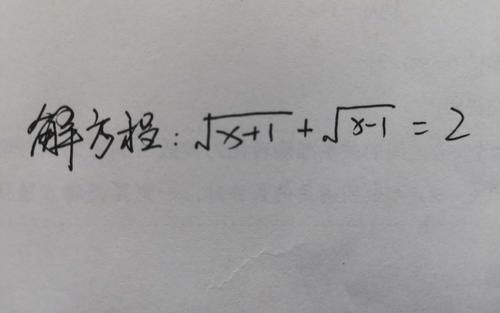 解方程：√(x+1) + √(x-1) = 2